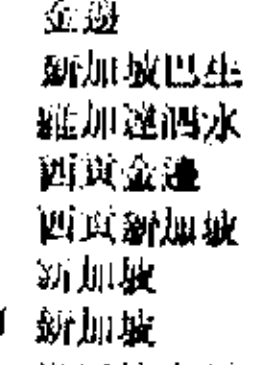 金邊
新加坡巴生
雅加達泗水
西貢金邊
西貢新加坡
新加坡
新加坡